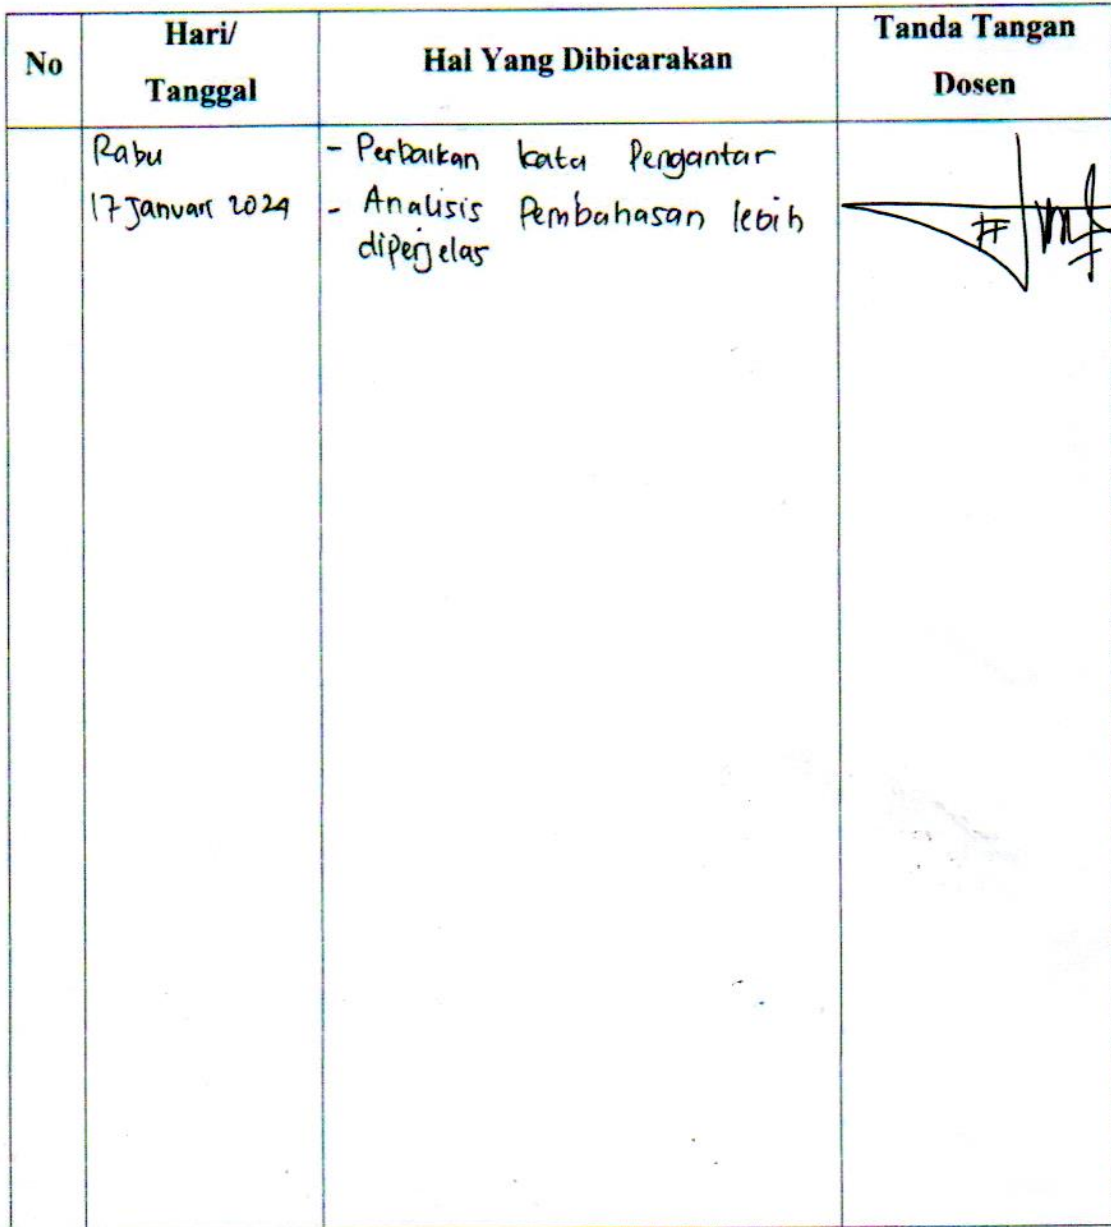 No
Hari/
Tanggal
Hal Yang Dibicarakan
Tanda Tangan
Dosen
Rabu
17 Januari 2024
- Perbaikan kata Pengantar
- Analisis Pembahasan lebih
diperjelas